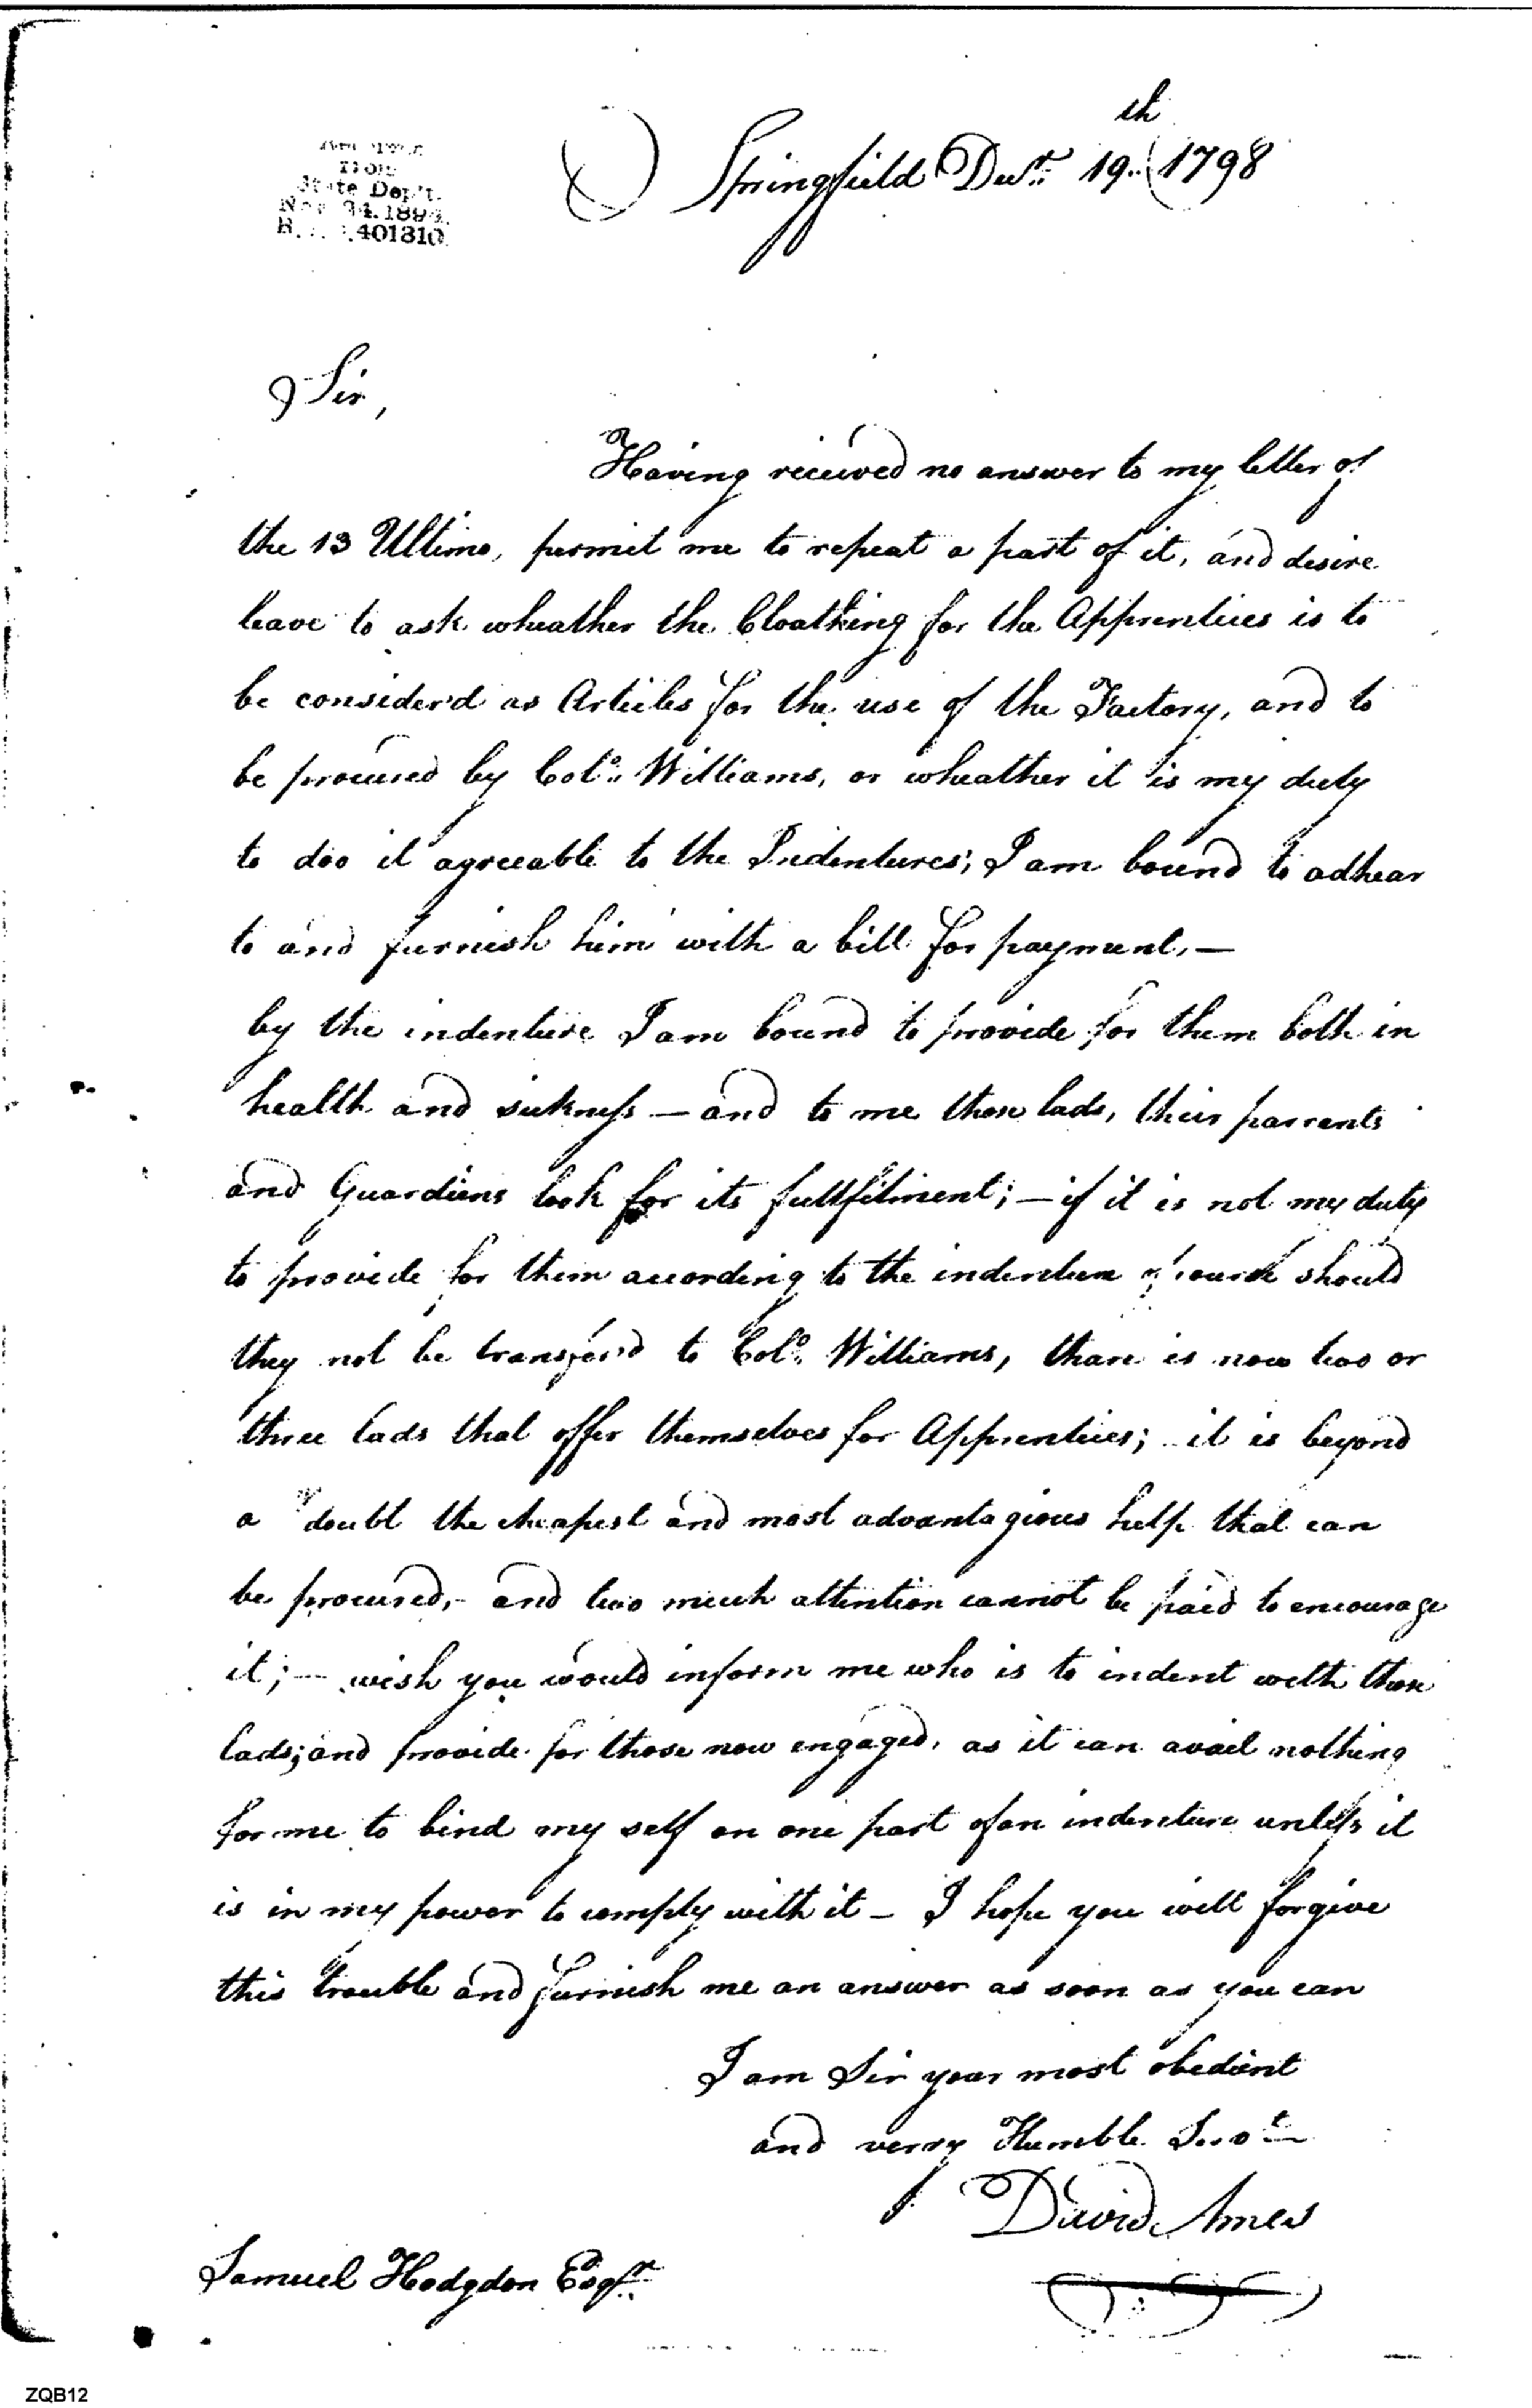 Springfield Decr. 19th 1798
from
State Dep't.
Nov 24. 1894.
401310
Sir,
Having received no answer to my letter of
the 13 Ultimo, permit me to repeat a part of it, and desire
leave to ask wheather the Cloathing for the Apprentices is to
be considerd as Articles for the use of the Factory, and to
be procured by Colo. Williams, or wheather it is my duty
to doo it agreeable to the Indentures; I am bound to adhear
to and furnish him with a bill for payment,—
by the indenture I am bound to provide for them both in
health and sickness — and to me those lads, their parrents
and Guardians look for its fullfilment; — if it is not my duty
to provide for them according to the indenture of course should
they not be transferd to Colo. Williams, thare is now two or
three lads that offer themselves for Apprentices; it is beyond
a doubt the cheapest and most advantagious help that can
be procured, - and two much attention cannot be paid to encourage
it; — wish you would inform me who is to indent with those
lads; and provide for those now engaged, as it can avail nothing
for me to bind my self on one part of an indenture unless it
is in my power to comply with it — I hope you will forgive
this trouble and furnish me an answer as soon as you can
I am Sir your most obedient
and verry Humble Servt
David Ames
Samuel Hodgdon Esqr.
ZQB12